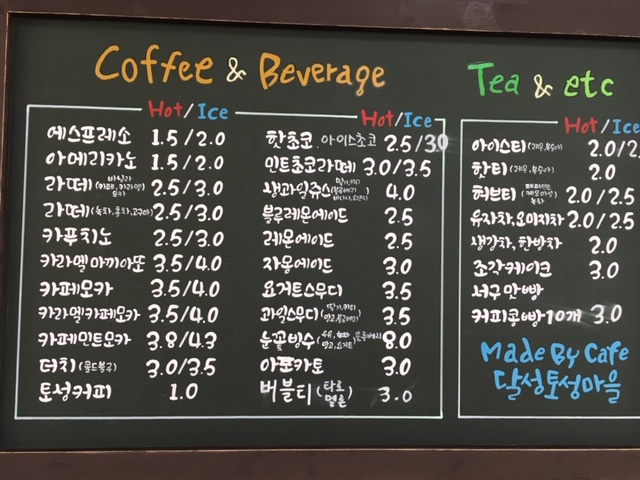 Coffee & Beverage
Hot/Ice
에스프레소 1.5/2.0
아메리카노 1.5/2.0
라떼 (바닐라 카라멜 모카) 2.5/3.0
라떼 (녹차,홍차,고구마) 2.5/3.0
카푸치노 2.5/3.0
카라멜마끼아또 3.5/4.0
카페모카 3.5/4.0
카라멜카페모카 3.5/4.0
카페민트모카 3.8/4.3
더치 (콜드브루) 3.0/3.5
토성커피 1.0
Hot/Ice
핫초코.아이스초코 2.5/3.0
민트초코라떼 3.0/3.5
생과일쥬스 4.0
블루레몬에이드 2.5
레몬에이드 2.5
자몽에이드 3.0
요거트스무디 3.5
과일스무디 3.5
눈꽃빙수 8.0
아포카토 3.0
버블티 (타로 멜론) 3.0
Tea & etc
Hot/Ice
아이스티 2.0/2.
한티 2.0
허브티 2.0/2.5
유자차,오미자차 2.0/2.5
생강차,한방차 2.0
조각케이크 3.0
서구맛빵
커피콩빵10개 3.0
Made By Cafe
달성토성마을